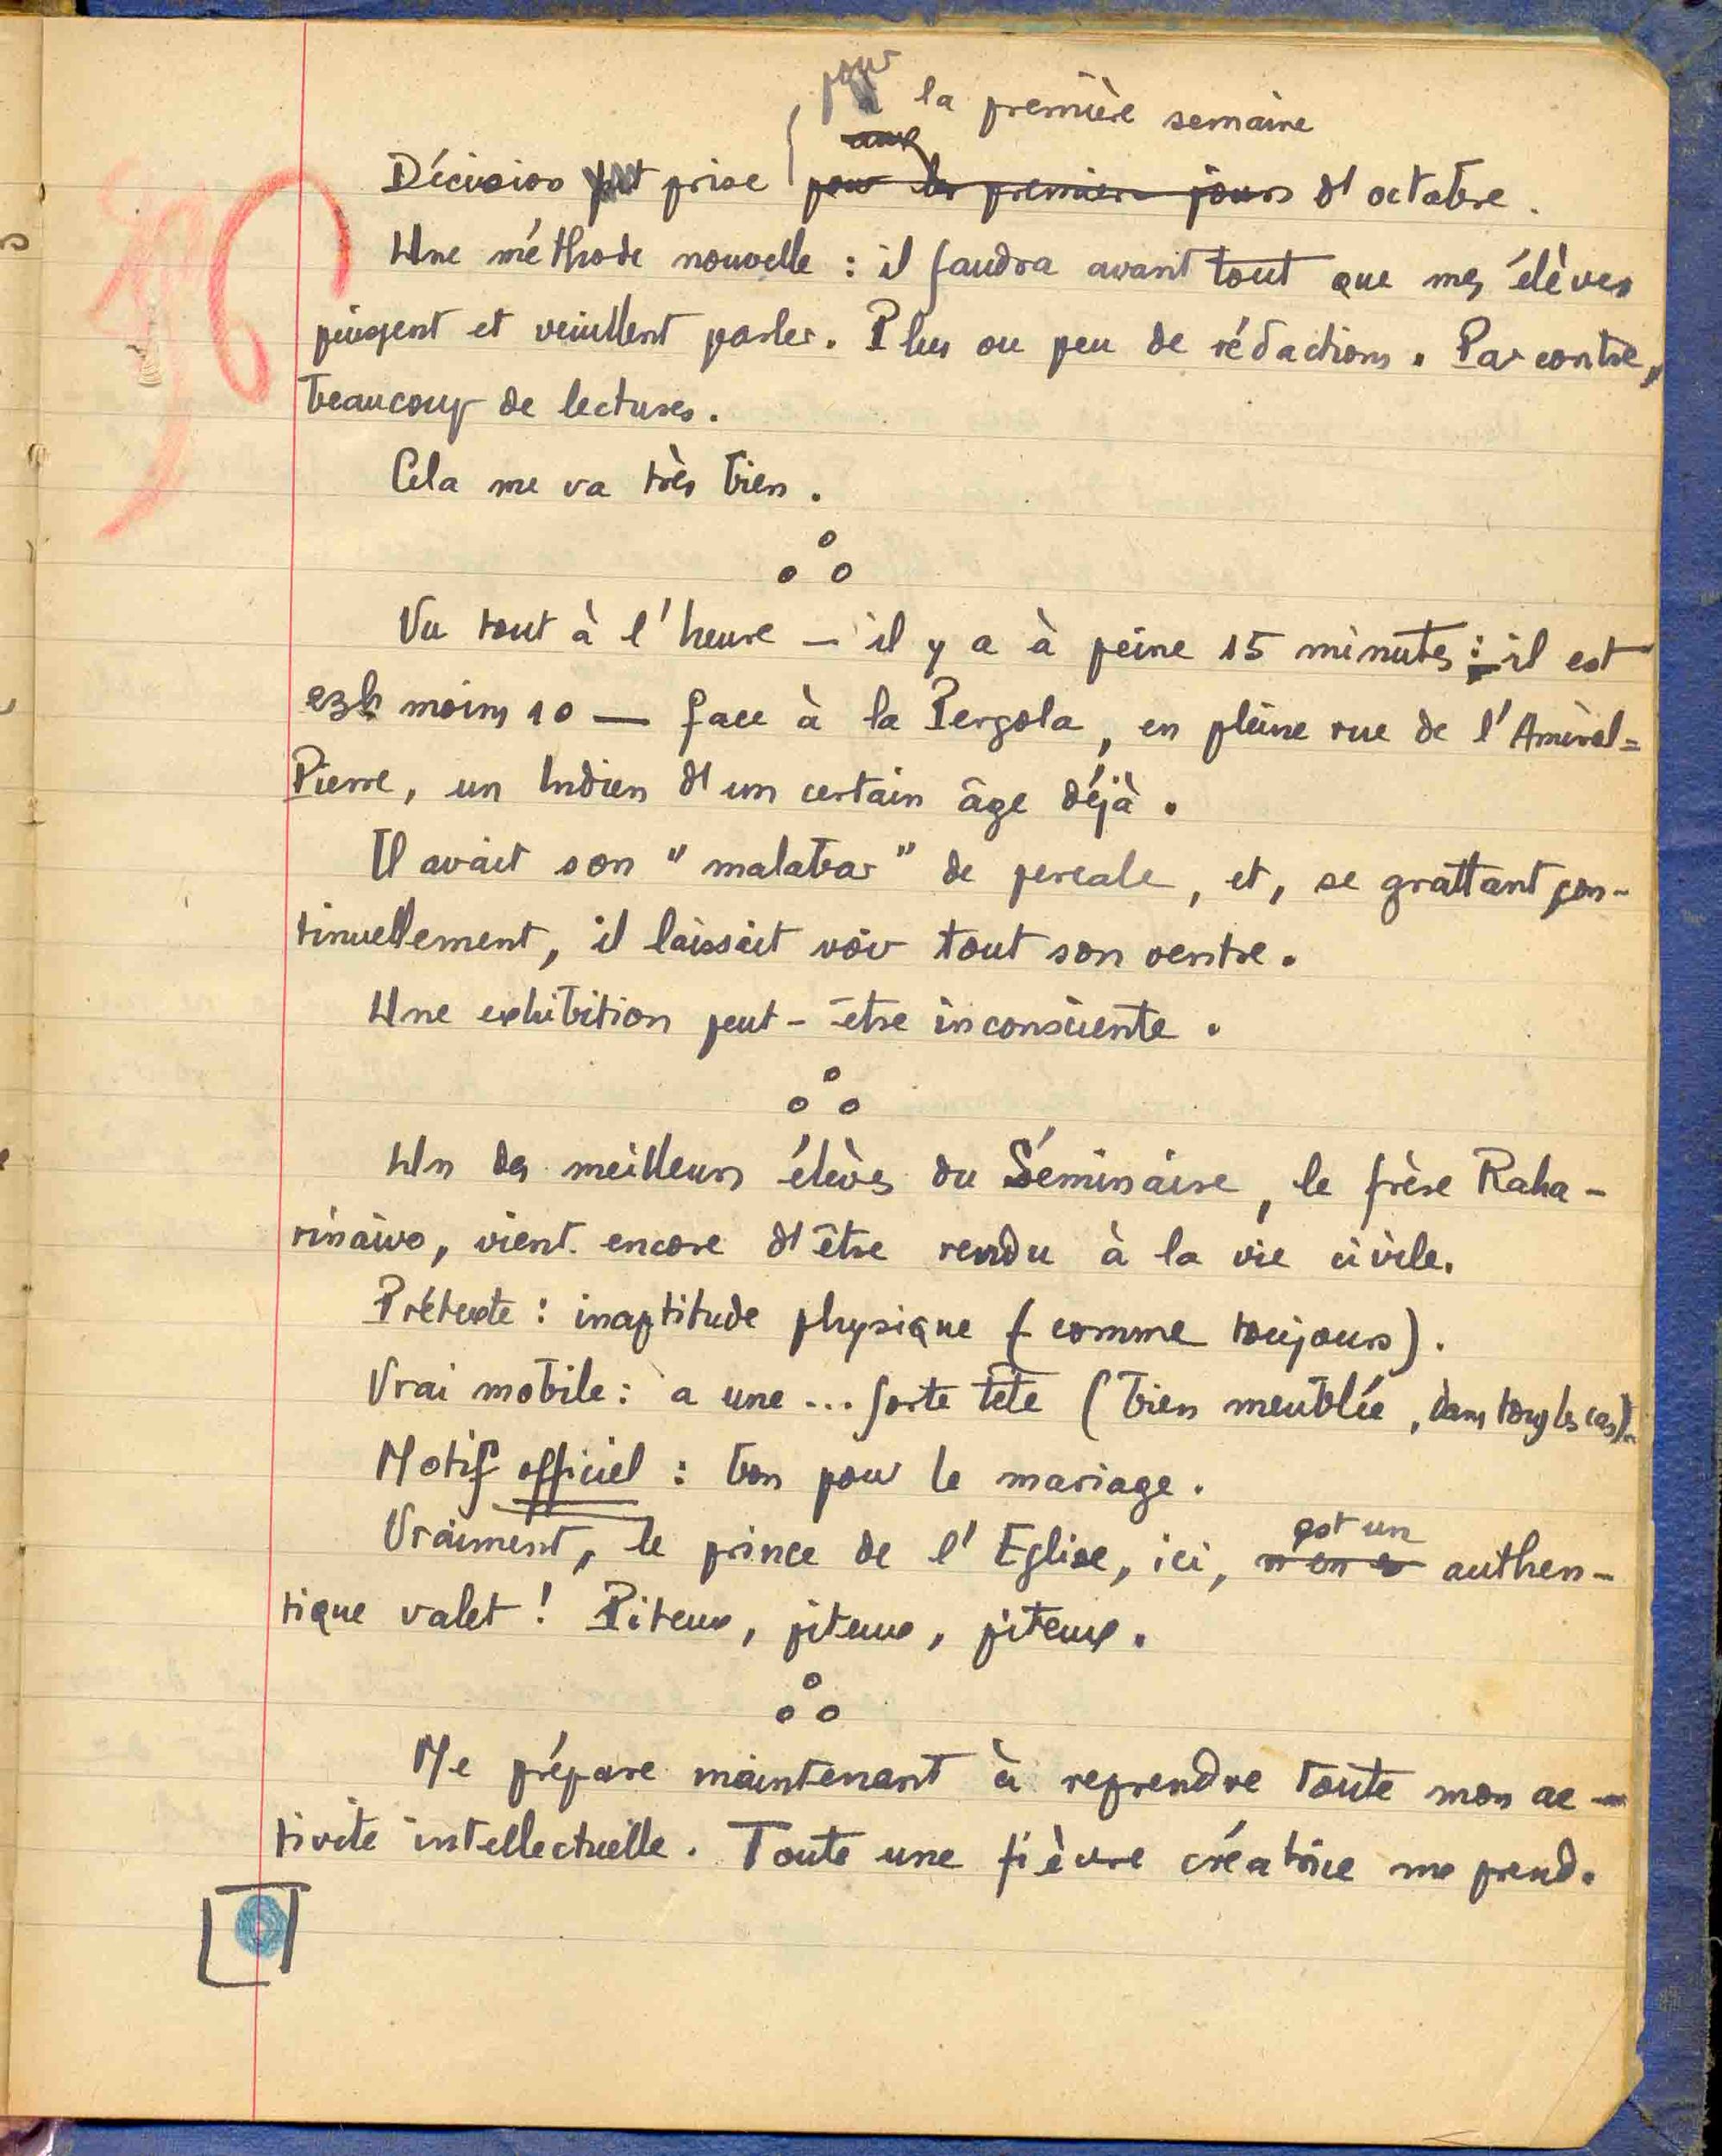 pour la première semaine
aux
Décision prise pour les premiers jours d'octobre.
Une méthode nouvelle : il faudra avant tout que mes élèves
puissent et veuillent parler. Plus ou peu de rédactions. Par contre,
beaucoup de lectures.
Cela me va très bien.
Vu tout à l'heure — il y a à peine 15 minutes : il est
23h moins 10 — face à la Pergola, en pleine rue de l'Amiral=
Pierre, un Indien d'un certain âge déjà.
Il avait son "malabar" de percale, et, se grattant con-
tinuellement, il laissait voir tout son ventre.
Une exhibition peut-être inconsciente.
Un des meilleurs élèves du Séminaire, le frère Raha-
rinaivo, vient encore d'être rendu à la vie civile.
Prétexte : inaptitude physique (comme toujours).
Vrai mobile : a une ... forte tête (bien meublée, dans tous les cas).
Motif officiel : bon pour le mariage.
est un
Vraiment, le prince de l'Eglise, ici, n'en e authen-
tique valet ! Piteux, piteux, piteux.
Me prépare maintenant à reprendre toute mon ac-
tivité intellectuelle. Toute une fièvre créatrice me prend.